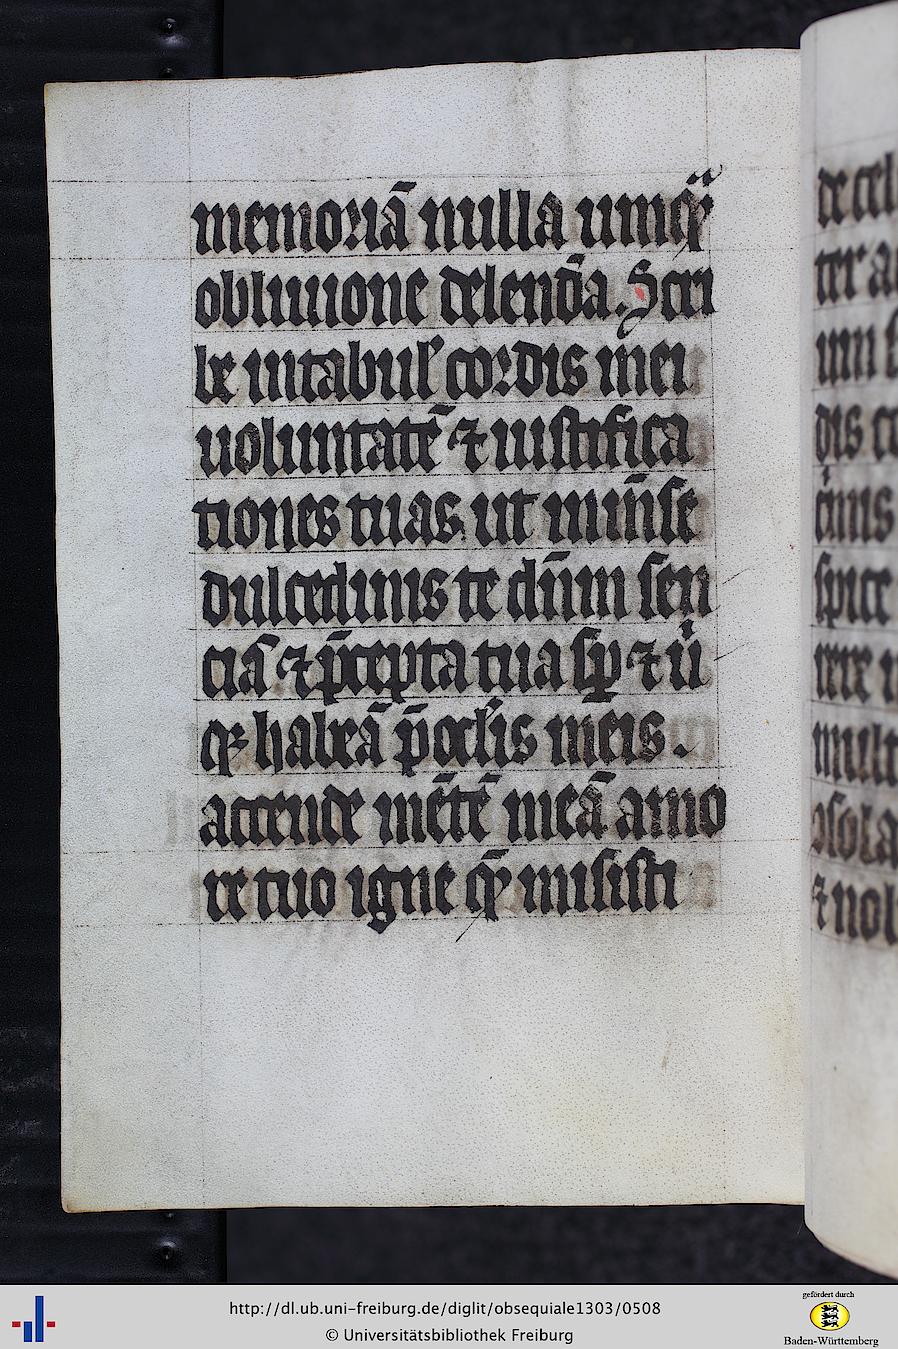 memoriā nulla umq̄
obliuione delend̄a. Scri
be intabul' cordis mei
uoluntatē ⁊ iustifica
tiones tuas. ut im̄ense
dulcedinis te dn̄m sen
ciā ⁊ p̄cepta tua sp̄ ⁊ ub
q; habeā p̄ oclis meis.
accende mētē meā amo
re tuo igne q̄ misisti
http://dl.ub.uni-freiburg.de/diglit/obsequiale1303/0508
© Universitätsbibliothek Freiburg
gefördert durch
Baden-Württemberg